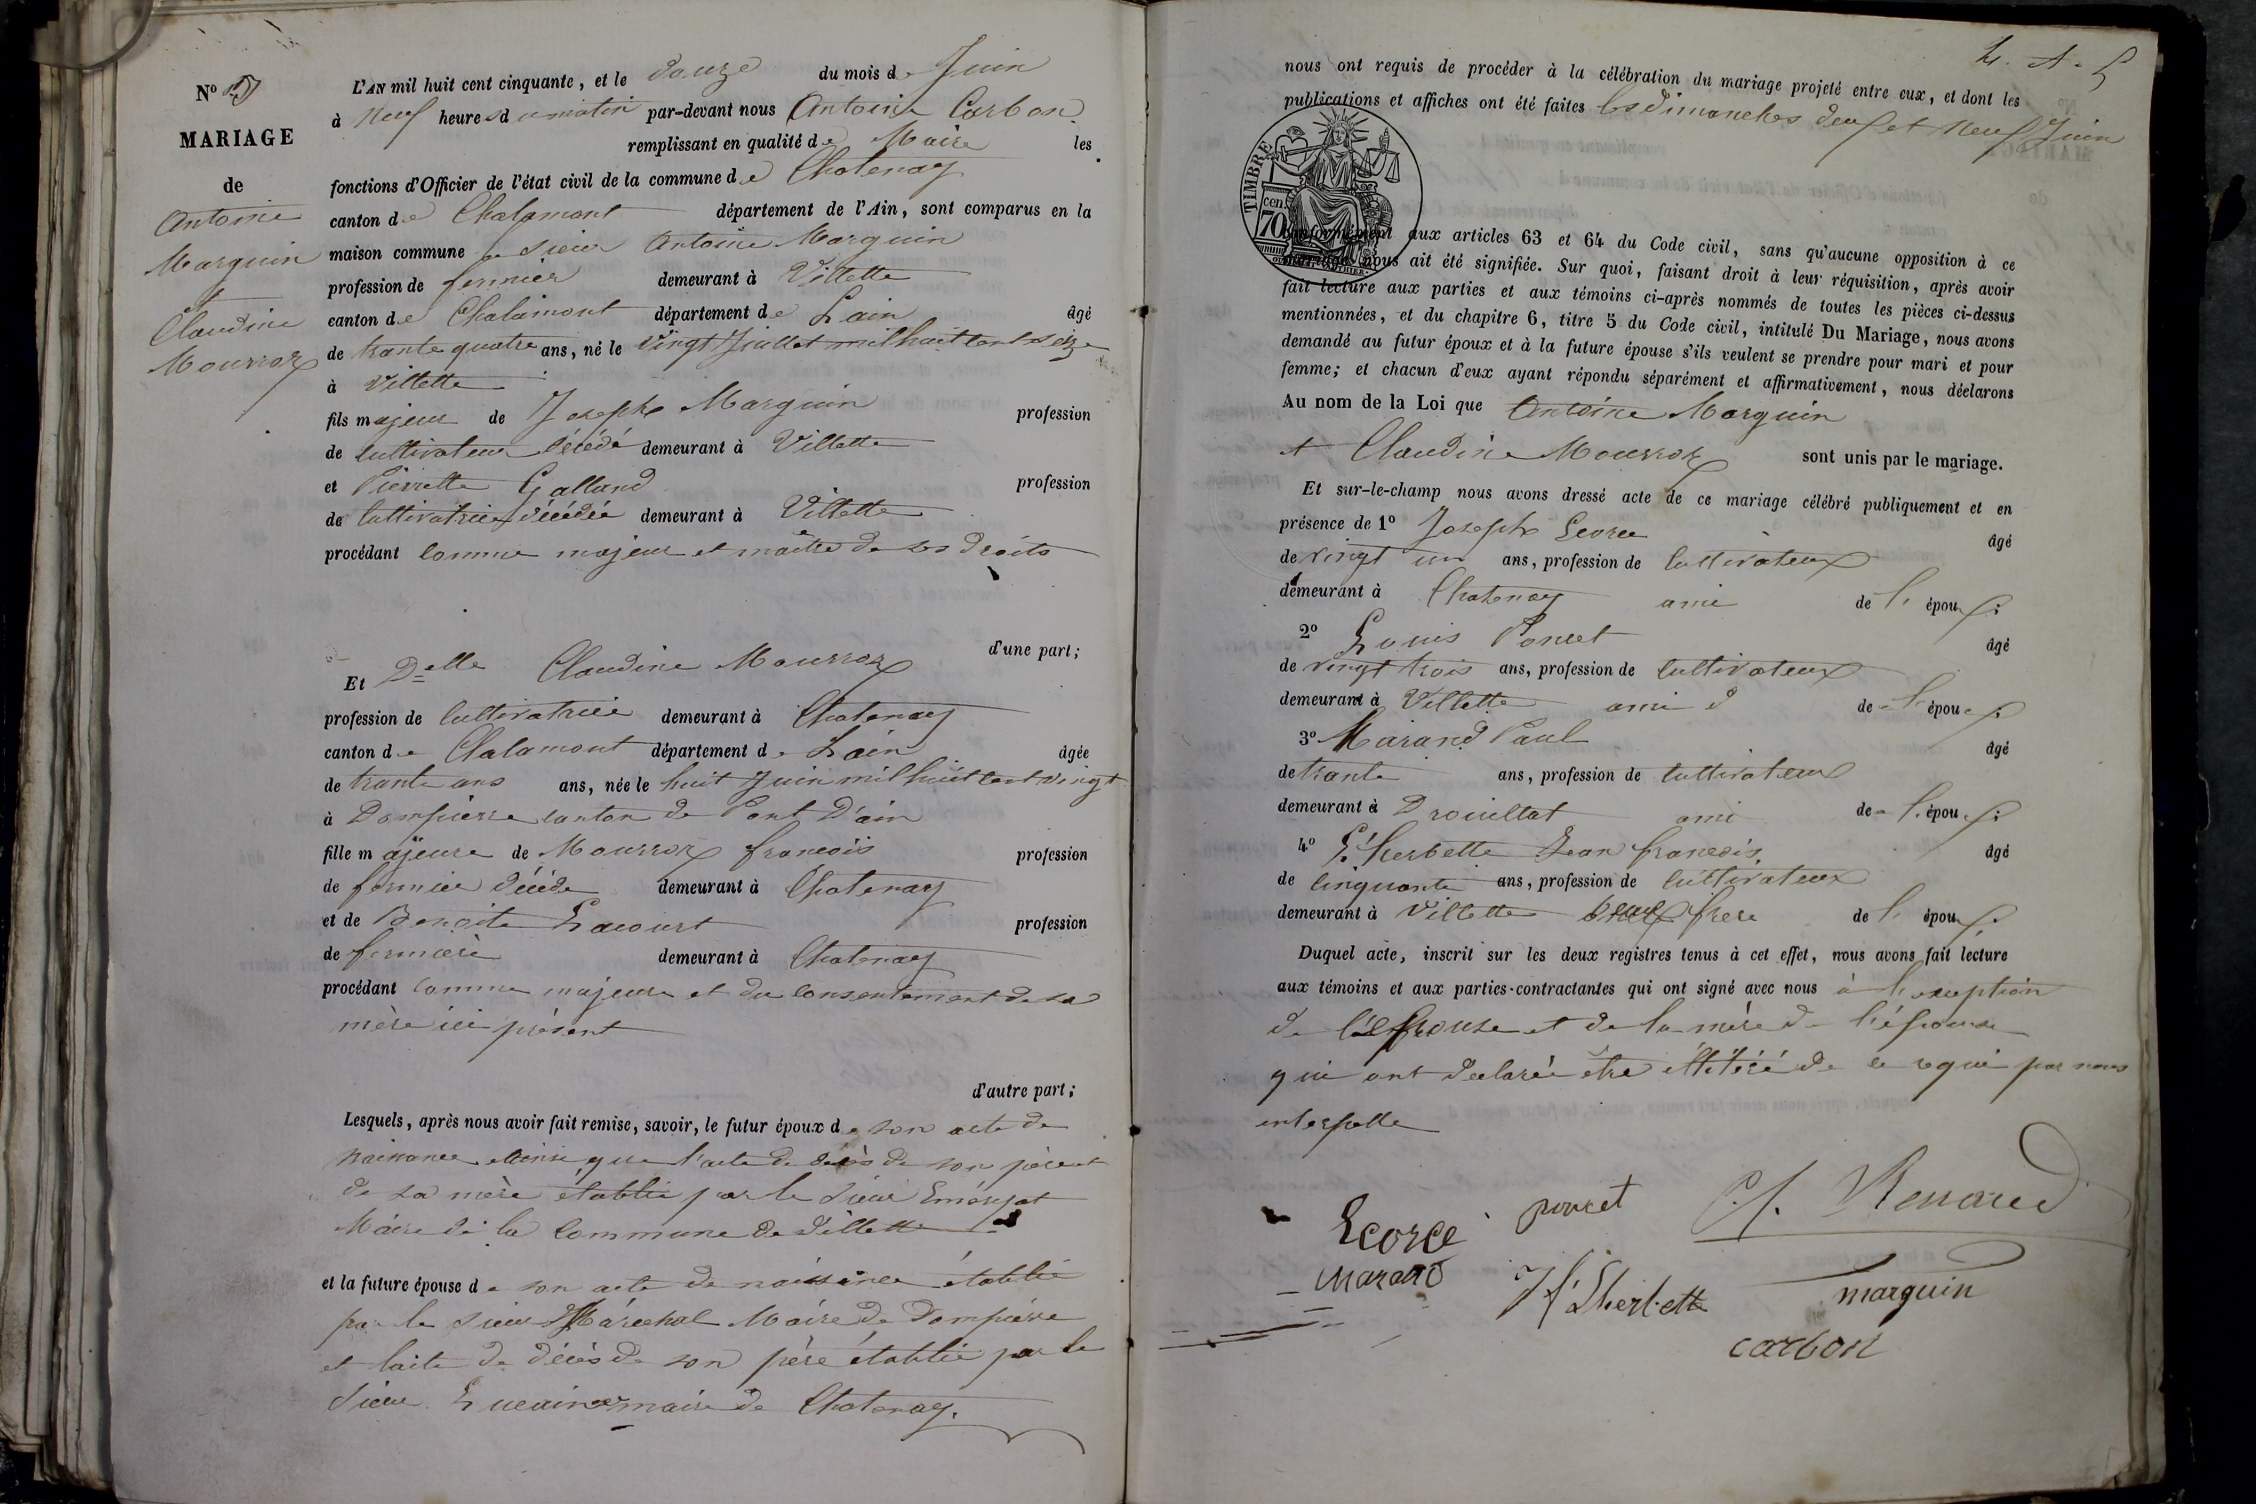 N°
MARIAGE
de
Antoine
Marguin
et
Claudine
Mourroz
L'AN mil huit cent cinquante, et le douze du mois de Juin
à neuf heures du matin par-devant nous Antoine Carbon
remplissant en qualité de Maire les
fonctions d'Officier de l'état civil de la commune de Chatenay
canton de Chalamont département de l'Ain, sont comparus en la
maison commune le sieur Antoine Marguin
profession de fermier demeurant à Villette
canton de Chalamont département de Lain âgé
de trante quatre ans, né le vingt Juillet mil huit cent seize
à Villette
fils majeur de Joseph Marguin profession
de cultivateur décédé demeurant à Villette
et Pierrette Galland profession
de cultivatrice décédée demeurant à Villette
procédant comme majeur et maître de ses droits
d'une part;
Et Delle Claudine Mourroz
profession de cultivatrice demeurant à Chatenay
canton de Chalamont département de Lain âgée
de trante ans ans, née le huit Juin mil huit cent vingt
à Dompierre canton de Pont D'ain
fille majeure de Mourroz francois profession
de fermier décédé demeurant à Chatenay
et de Benoite Lacourt profession
de fermiere demeurant à Chatenay
procédant comme majeure et du consentement de sa
mère ici présent
d'autre part;
Lesquels, après nous avoir fait remise, savoir, le futur époux de son acte de
naissance que l'acte de décès de son père et
de sa mère établie par le sieur
Maire de la Commune de Villette
et la future épouse de son acte de naissance établie
par le sieur Maréchal Maire de Dompierre
et l'acte de décès de son père établie par le
sieur maire de Chatenay.
nous ont requis de procéder à la célébration du mariage projeté entre eux, et dont les
publications et affiches ont été faites les dimanches deux et neuf Juin
TIMBRE
cen. 70
conformément aux articles 63 et 64 du Code civil, sans qu'aucune opposition à ce
mariage nous ait été signifiée. Sur quoi, faisant droit à leur réquisition, après avoir
fait lecture aux parties et aux témoins ci-après nommés de toutes les pièces ci-dessus
mentionnées, et du chapitre 6, titre 5 du Code civil, intitulé Du Mariage, nous avons
demandé au futur époux et à la future épouse s'ils veulent se prendre pour mari et pour
femme; et chacun d'eux ayant répondu séparément et affirmativement, nous déclarons
Au nom de la Loi que Antoine Marguin
et Claudine Mourroz sont unis par le mariage.
Et sur-le-champ nous avons dressé acte de ce mariage célébré publiquement et en
présence de 1° Joseph Ecorce âgé
de vingt un ans, profession de cultivateur
demeurant à Chatenay ami de l' époux;
2° Louis Poncet âgé
de vingt trois ans, profession de cultivateur
demeurant à Villette ami de l' époux;
3° Marand Paul âgé
de trante ans, profession de cultivateur
demeurant à Drouillat ami de l' époux;
4° L'herbette Jean francois âgé
de cinquante ans, profession de cultivateur
demeurant à Villette beau frere de l' époux.
Duquel acte, inscrit sur les deux registres tenus à cet effet, nous avons fait lecture
aux témoins et aux parties-contractantes qui ont signé avec nous à l'exception
de l'épouse et de la mère de l'épouse
qui ont declarée être illitéré de ce requi par nous
interpelle
Ecorce poncet Renared
marand L'herbette marguin
carbon